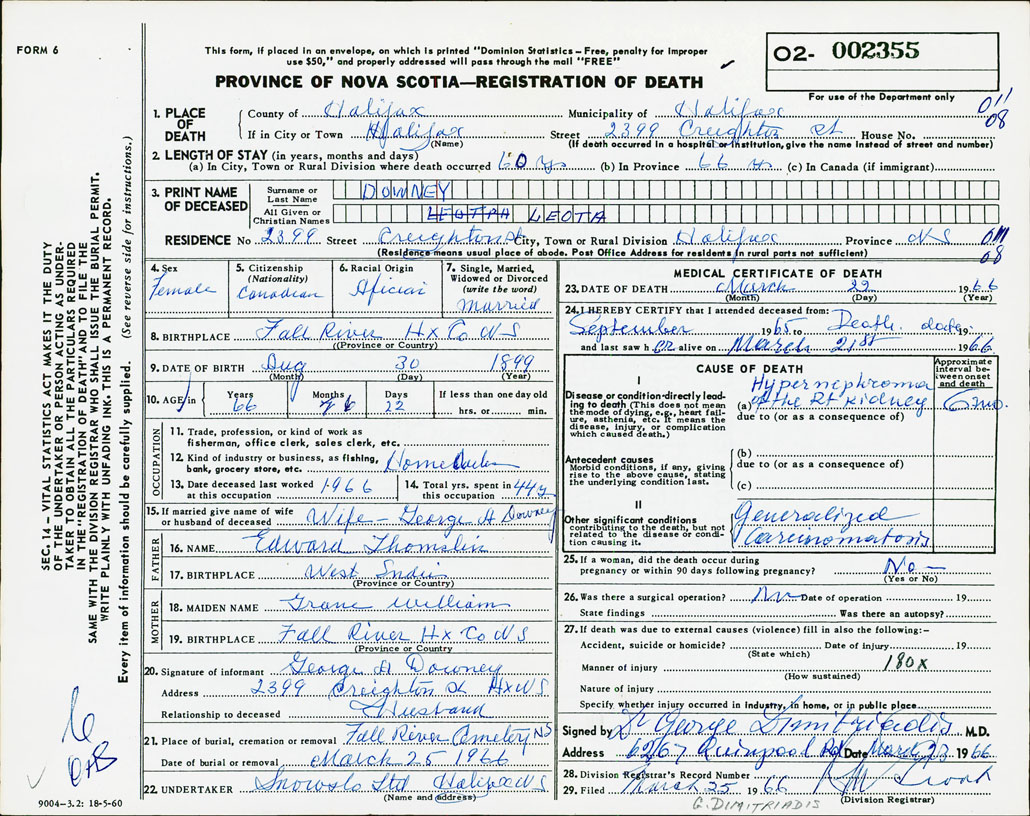 FORM 6
This form, if placed in an envelope, on which is printed "Dominion Statistics – Free, penalty for improper
use $50," and properly addressed will pass through the mail "FREE"
PROVINCE OF NOVA SCOTIA—REGISTRATION OF DEATH
O2- 002355
For use of the Department only
011
08
1. PLACE OF DEATH
County of Halifax Municipality of Halifax
If in City or Town Halifax Street 2399 Creighton St House No.
(Name) (If death occurred in a hospital or institution, give the name instead of street and number)
2. LENGTH OF STAY (in years, months and days)
(a) In City, Town or Rural Division where death occurred 60 yrs (b) In Province 66 yrs (c) In Canada (if immigrant)
3. PRINT NAME OF DECEASED
Surname or Last Name DOWNEY
All Given or Christian Names LEOTHA LEOTA
RESIDENCE No 2399 Street Creighton St City, Town or Rural Division Halifax Province NS
011
08
(Residence means usual place of abode. Post Office Address for residents in rural parts not sufficient)
4. Sex Female
5. Citizenship (Nationality) Canadian
6. Racial Origin
7. Single, Married, Widowed or Divorced (write the word) Married
8. BIRTHPLACE Fall River Hx Co NS
(Province or Country)
9. DATE OF BIRTH Aug 30 1899
(Month) (Day) (Year)
10. AGE in Years 66 Months 6 Days 22 If less than one day old hrs. or min.
OCCUPATION
11. Trade, profession, or kind of work as fisherman, office clerk, sales clerk, etc.
12. Kind of industry or business, as fishing, bank, grocery store, etc. Home
13. Date deceased last worked at this occupation 1966
14. Total yrs. spent in this occupation 44 y
15. If married give name of wife or husband of deceased Wife – George A Downey
FATHER
16. NAME Edward
17. BIRTHPLACE West Indies
(Province or Country)
MOTHER
18. MAIDEN NAME William
19. BIRTHPLACE Fall River Hx Co NS
(Province or Country)
20. Signature of informant George A Downey
Address 2399 Creighton St Hx NS
Relationship to deceased Husband
21. Place of burial, cremation or removal Fall River Cemetery NS
Date of burial or removal March 25 1966
22. UNDERTAKER Snows Ltd Halifax NS
(Name and address)
MEDICAL CERTIFICATE OF DEATH
23. DATE OF DEATH March 22 1966
(Month) (Day) (Year)
24. I HEREBY CERTIFY that I attended deceased from:
September 1965 to Death date 19
and last saw her alive on March 21st 1966
CAUSE OF DEATH
Approximate interval between onset and death
I
Disease or condition directly leading to death (This does not mean the mode of dying, e.g., heart failure, asthenia, etc. It means the disease, injury, or complication which caused death.)
(a) Hypernephroma of the Rt kidney 6 mo.
due to (or as a consequence of)
Antecedent causes
Morbid conditions, if any, giving rise to the above cause, stating the underlying condition last.
(b)
due to (or as a consequence of)
(c)
II
Other significant conditions contributing to the death, but not related to the disease or condition causing it.
Generalized
Carcinomatosis
25. If a woman, did the death occur during pregnancy or within 90 days following pregnancy? No –
(Yes or No)
26. Was there a surgical operation? No Date of operation 19
State findings Was there an autopsy?
27. If death was due to external causes (violence) fill in also the following:–
Accident, suicide or homicide? Date of injury 19
(State which)
Manner of injury 180X
(How sustained)
Nature of injury
Specify whether injury occurred in industry, in home, or in public place
Signed by Dr George Dimitriadis M.D.
Address 6267 Quinpool Rd Date March 23 1966
28. Division Registrar's Record Number
29. Filed March 25 1966
(Division Registrar)
G. DIMITRIADIS
SEC. 14 – VITAL STATISTICS ACT MAKES IT THE DUTY
OF THE UNDERTAKER OR PERSON ACTING AS UNDER-
TAKER TO OBTAIN ALL THE PARTICULARS REQUIRED
IN THE "REGISTRATION OF DEATH" AND TO FILE THE
SAME WITH THE DIVISION REGISTRAR WHO SHALL ISSUE THE BURIAL PERMIT.
WRITE PLAINLY WITH UNFADING INK. THIS IS A PERMANENT RECORD.
Every item of information should be carefully supplied. (See reverse side for instructions.)
9004–3.2: 18-5-60